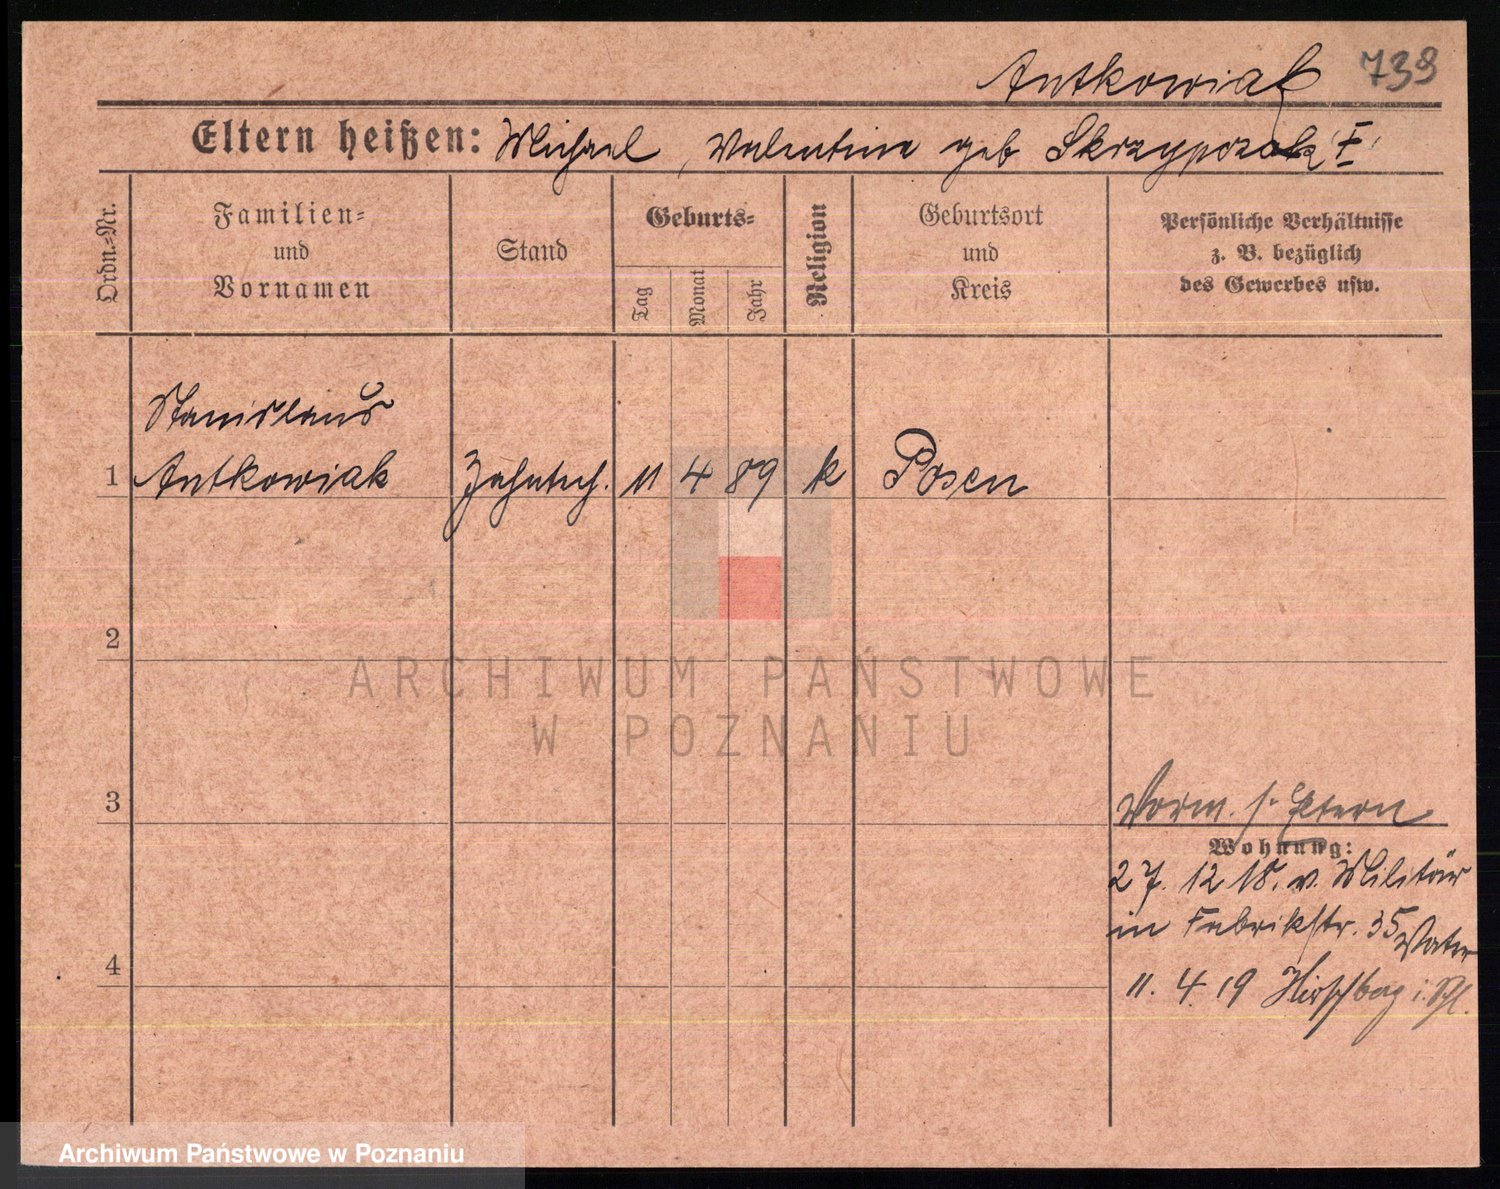 Antkowiak 739
Eltern heißen: Michael, Valentine geb Skrzypczak
Ordn.-Nr.
Familien-
und
Vornamen
Stand
Geburts-
Tag
Monat
Jahr
Religion
Geburtsort
und
Kreis
Persönliche Verhältnisse
z. B. bezüglich
des Gewerbes usw.
Stanislaus
1 Antkowiak Zahntech. 11 4 89 k Posen
2
ARCHIWUM PAŃSTWOWE
W POZNANIU
3 Vorm. s. Eltern
Wohnung:
27. 12 18. v. Militär
in Fabrikstr. 35 Vater
4
11. 4. 19 Hirschberg i. Schl.
Archiwum Państwowe w Poznaniu